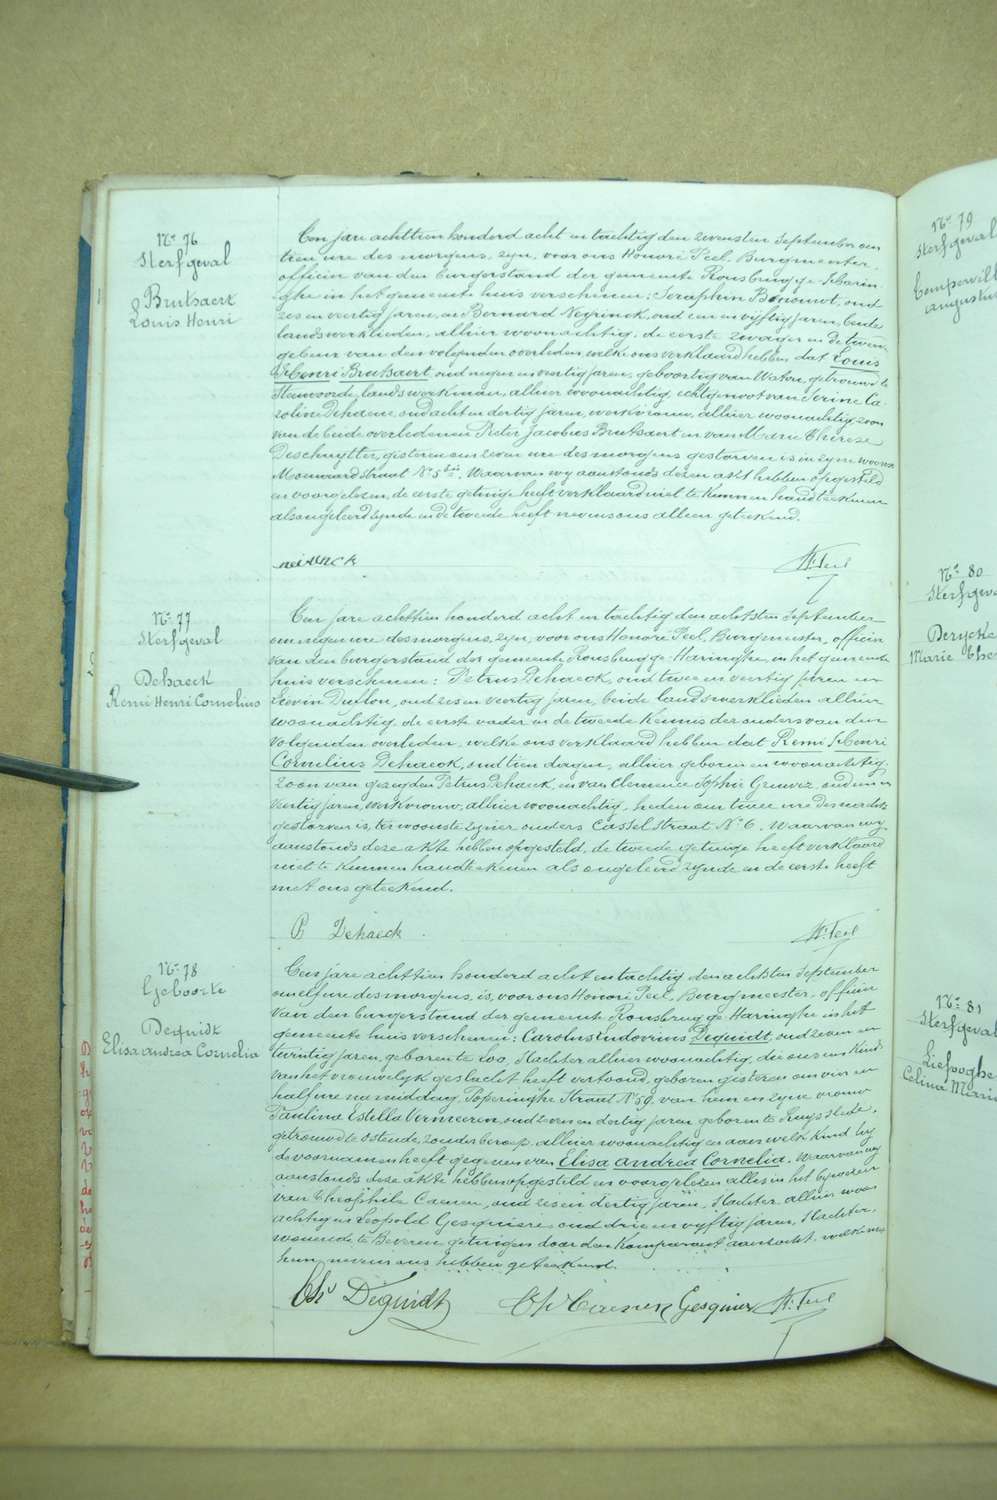 No 76
Sterfgeval
Brutsaert
Louis Henri
Een jare achttien honderd acht en tachtig den zevensten September om
tien ure des morgens, zyn, voor ons Honoré Peel, Burgmeester,
officier van den burgerstand der gemeente Rousbrugge-Harin-
ghe in het gemeente huis verschenen: Seraphin, oud
zes en veertig jaren, en Bernard Neyrinck, oud een en vyftig jaren, beide
landswerklieden, alhier woonachtig, de eerste zwager en de tweede
gebuur van den volgenden overleden, welke ons verklaard hebben dat Louis
Henri Brutsaert, oud negen en veertig jaren, geboortig van Watou, getrouwd te
Steenvoorde, landswerkman, alhier woonachtig, echtgenoot van Serine Ca-
roline Dehaene, oud acht en dertig jaren, werkvrouw, alhier woonachtig, zoon
van de beide overledenen Pieter Jacobus Brutsaert en van Marie Thérèse
Deschuytter, gisteren om zeven ure des morgens gestorven is in zyne woonst
straat No 5 bis. Waarvan wy aanstonds dezen akt hebben opgesteld
en voorgelezen, de eerste getuige heeft verklaard niet te kunnen handteekenen
als ongeleerd zynde en de tweede heeft nevens ons alleen geteekend.
neirinck H. Peel
No 77
Sterfgeval
Dehaeck
Remi Henri Cornelius
Een jare achttien honderd acht en tachtig den achtsten September
om negen ure des morgens, zyn, voor ons Honoré Peel, Burgmeester, officier
van den burgerstand der gemeente Rousbrugge-Haringhe, in het gemeente
huis verschenen: Petrus Dehaeck, oud twee en veertig jaren en
Lievin Duflou, oud zes en veertig jaren, beide landswerklieden alhier
woonachtig, de eerste vader en de tweede kennis der ouders van den
volgenden overleden, welke ons verklaard hebben dat Remi Henri
Cornelius Dehaeck, oud tien dagen, alhier geboren en woonachtig,
zoon van gezegden Petrus Dehaeck, en van Clemence Sophie, oud een en
veertig jaren, werkvrouw, alhier woonachtig, heden om twee ure des morgens
gestorven is, ter woonste zyner ouders Cassel Straat No 6. Waarvan wy
aanstonds deze akte hebben opgesteld, de tweede getuige heeft verklaard
niet te kunnen handteekenen als ongeleerd zynde en de eerste heeft
met ons geteekend.
P. Dehaeck H. Peel
No 78
Geboorte
Dequidt
Elisa Andrea Cornelia
Een jare achttien honderd acht en tachtig den achtsten September
om elf ure des morgens, is, voor ons Honoré Peel, Burgmeester, officier
van den burgerstand der gemeente Rousbrugge Haringhe in het
gemeente huis verschenen: Carolus Ludovicus Dequidt, oud zeven en
twintig jaren, geboren te Loo, Slachter alhier woonachtig, die ons een kind
van het vrouwelyk geslacht heeft vertoond, geboren gisteren om vier en
half ure namiddag, Poperinghe Straat No 59, van hem en zyne vrouw
Paulina Estella Vermeeren, oud zeven en dertig jaren geboren te Ruysselede,
getrouwd te Ostende, zonder beroep, alhier woonachtig en aan welk kind hy
de voornamen heeft gegeven van Elisa Andrea Cornelia. Waarvan wy
aanstonds deze akte hebben opgesteld en voorgelezen alles in het bywezen
van Theophile Caenen, oud zes en dertig jaren, Slachter, alhier woon-
achtig en Leopold Gesquiere oud drie en vyftig jaren, Slachter,
wonende te Beveren getuigen door den komparant aanzocht, welke met
hem nevens ons hebben geteekend.
Ch. Dequidt Th. Caenen Gesquiere H. Peel
No 79
Sterfgeval
No 80
Sterfgeval
Derycke
Marie
No 81
Sterfgeval
Liefooghe
Celina Marie